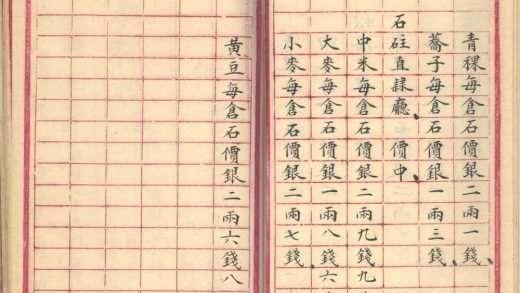 青稞每倉石價銀二兩一錢
蕎子每倉石價銀一兩三錢
石砫直隸廳 價中
中米每倉石價銀二兩九錢九
大麥每倉石價銀一兩八錢六
小麥每倉石價銀二兩七錢
黃豆每倉石價銀二兩六錢八